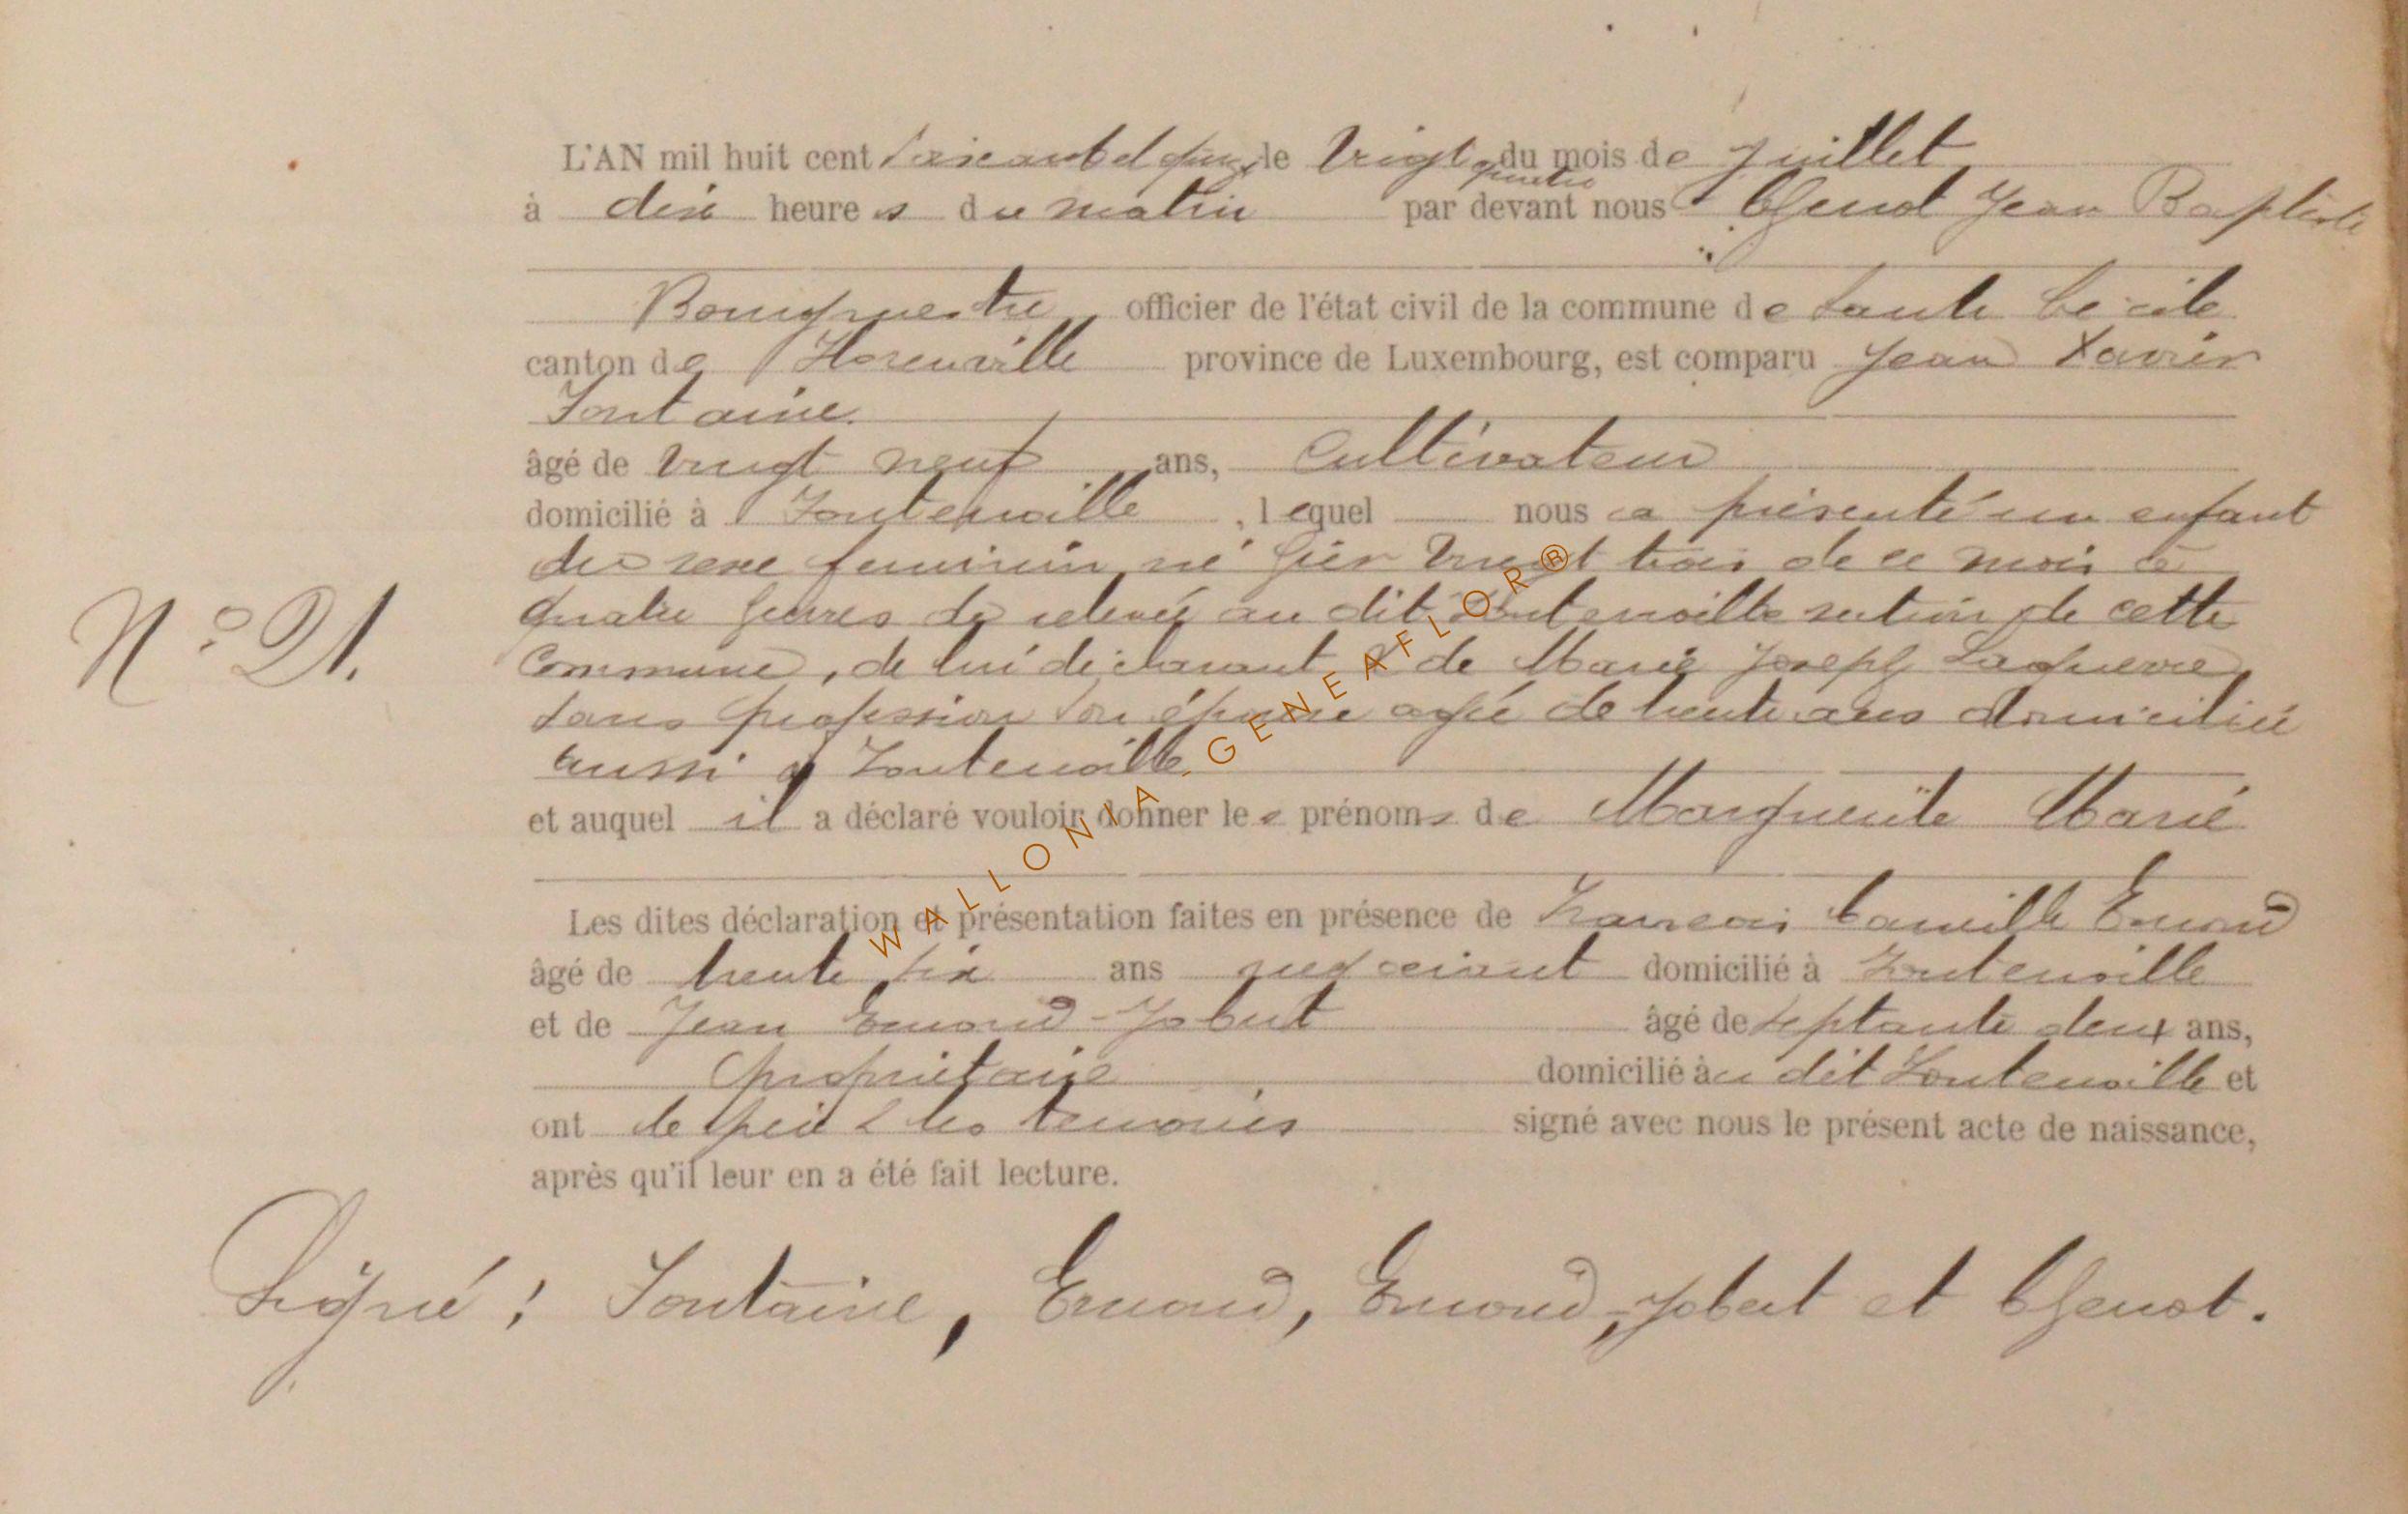 L'AN mil huit cent soixante et onze, le vingt quatre du mois de juillet
à dix heures du matin par devant nous Thenot Jean Baptiste
Bourgmestre officier de l'état civil de la commune de Sainte Cécile
canton de Florenville province de Luxembourg, est comparu Jean Xavier
Fontaine
âgé de vingt neuf ans, Cultivateur
domicilié à Fontenoille, lequel nous a présenté un enfant
du sexe feminin né hier vingt trois de ce mois à
quatre heures de relevée au dit Fontenoille section de cette
Commune, de lui déclarant & de Marie Joseph Laguerre
sans profession son épouse agée de trente ans domiciliée
aussi à Fontenoille
et auquel il a déclaré vouloir donner les prénoms de Marguerite Marie
Les dites déclaration et présentation faites en présence de François Camille Emond
âgé de trente six ans negociant domicilié à Fontenoille
et de Jean Emond-Jobert âgé de septante deux ans,
propriétaire domicilié au dit Fontenoille et
ont le père & les temoins signé avec nous le présent acte de naissance,
après qu'il leur en a été fait lecture.
N° 21.
Signé : Fontaine, Emond, Emond-Jobert et Thenot.
WALLONIA.GENEAFLOR®